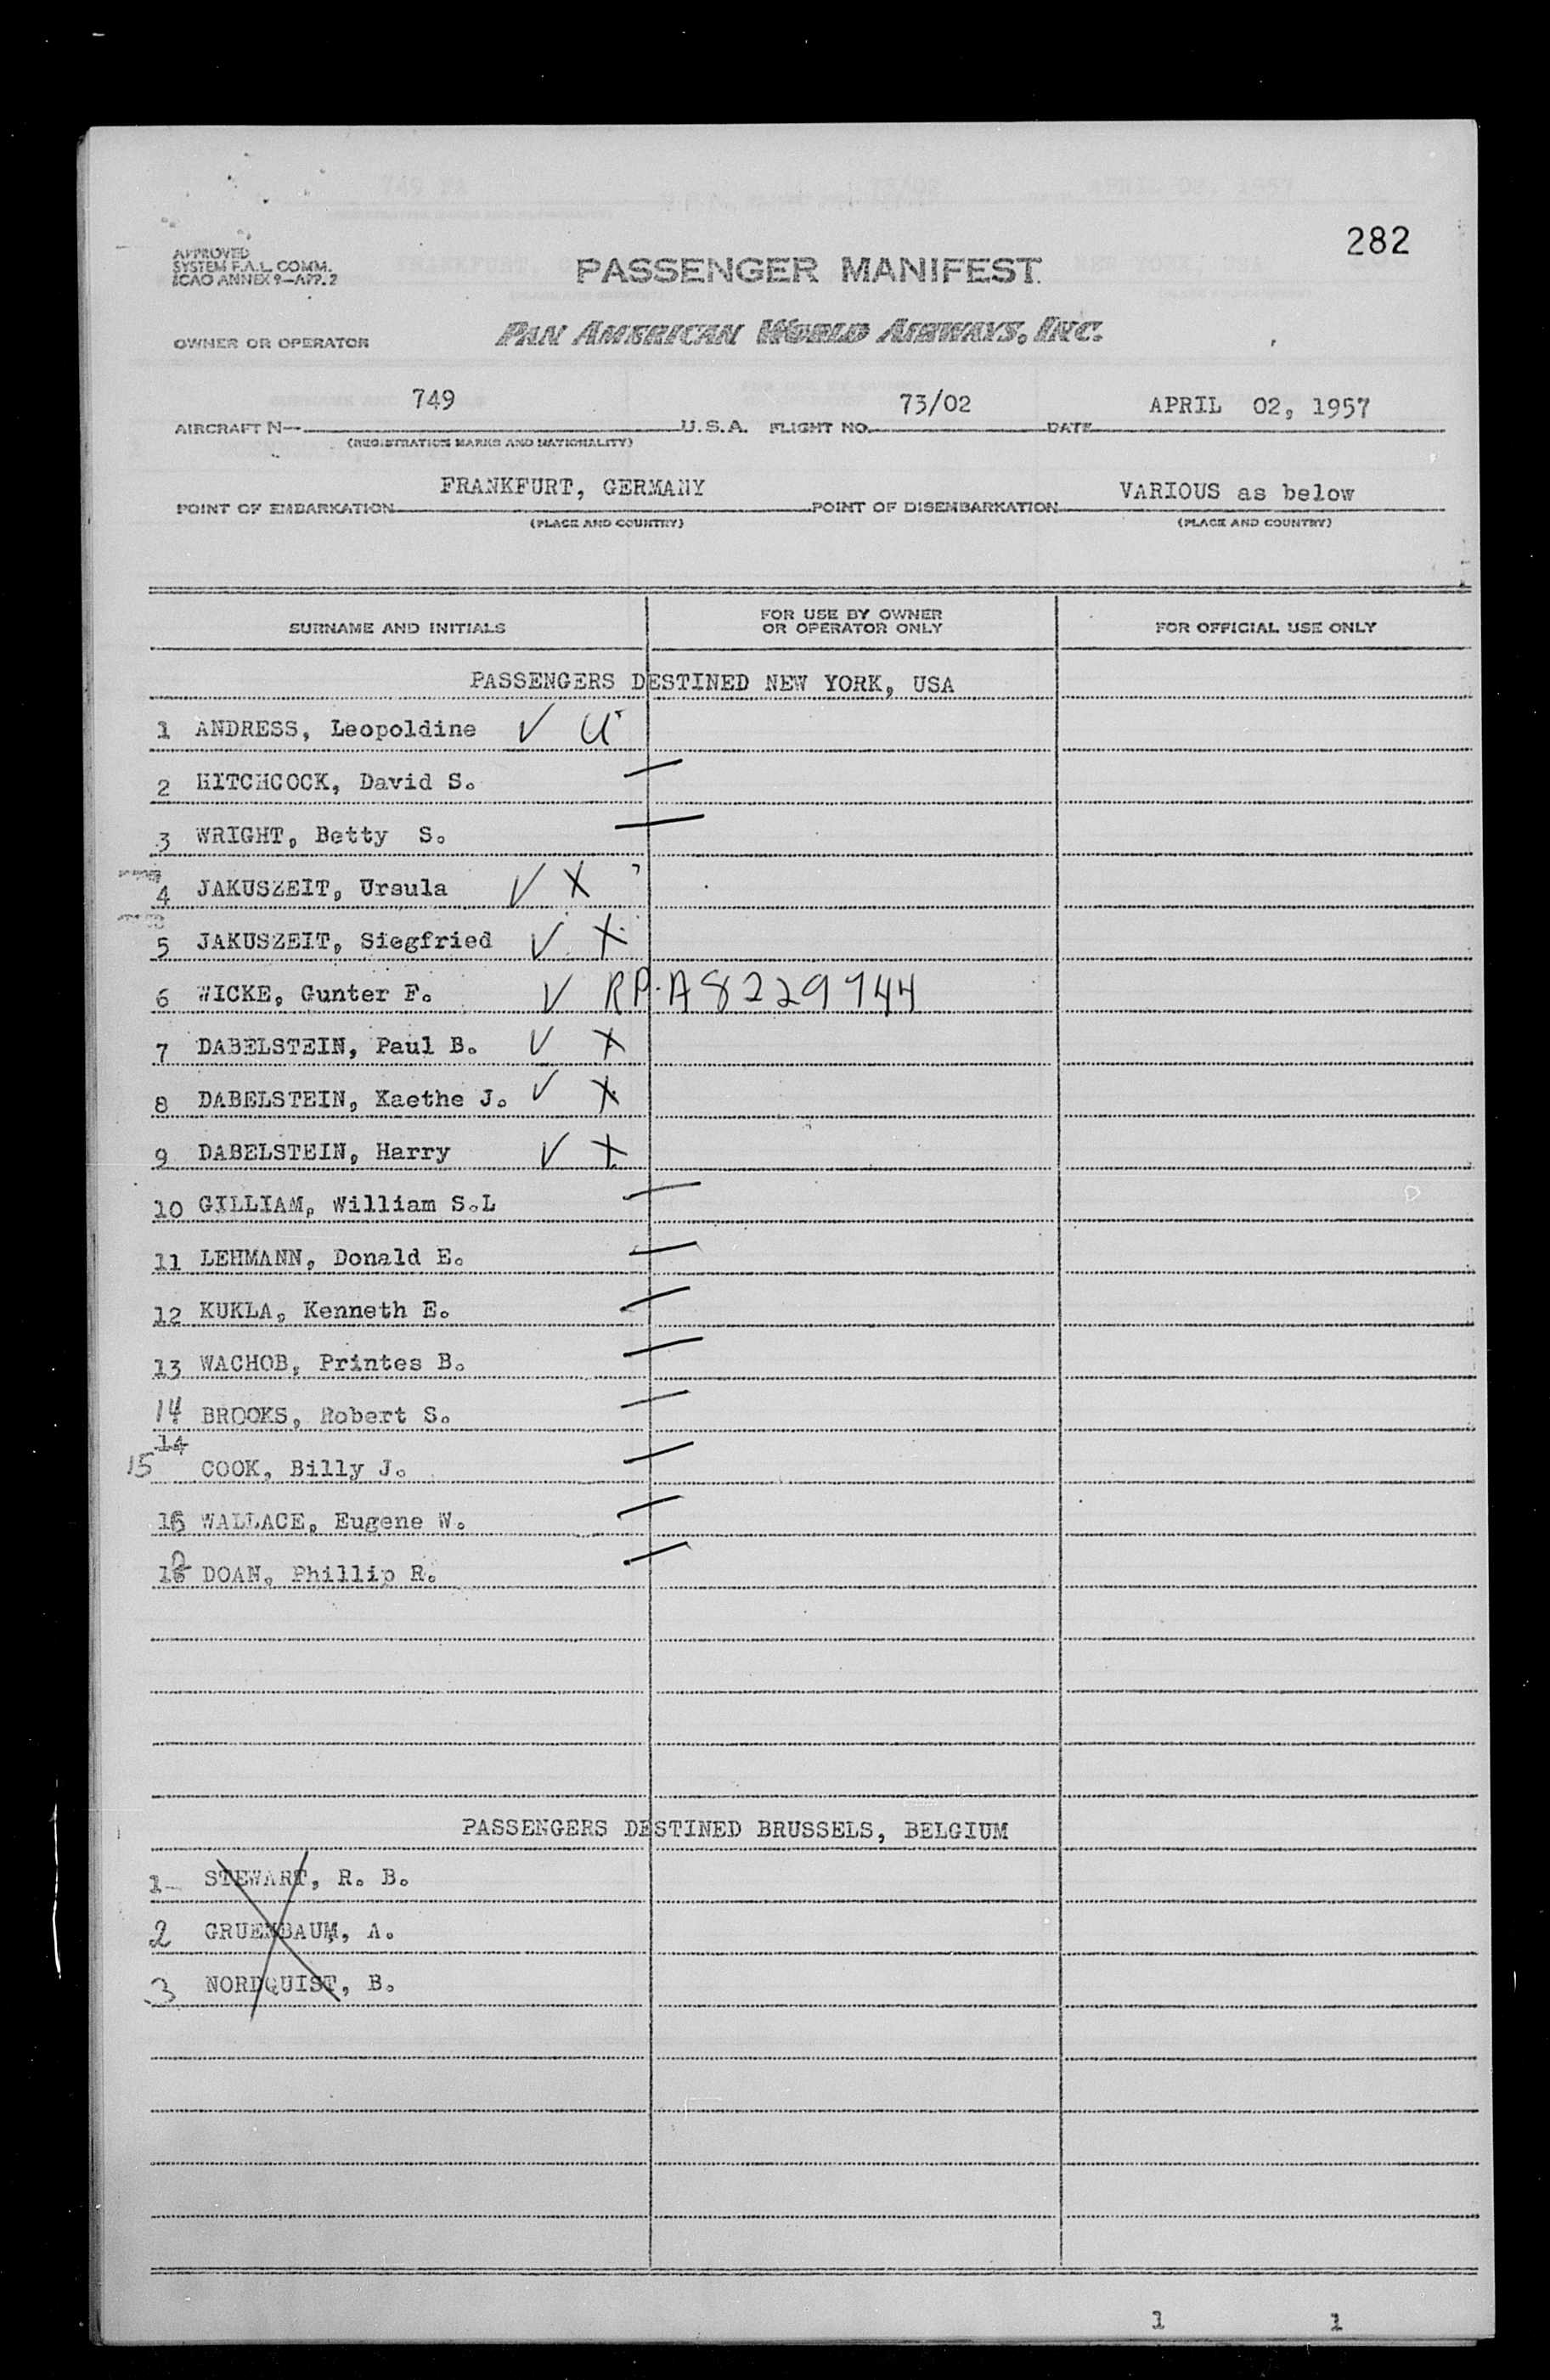 282
APPROVED
SYSTEM F.A.L. COMM.
ICAO ANNEX 9—APP. 2
PASSENGER MANIFEST
OWNER OR OPERATOR PAN AMERICAN WORLD AIRWAYS, INC.
AIRCRAFT N— 749 U.S.A. FLIGHT NO. 73/02 DATE APRIL 02, 1957
(REGISTRATION MARKS AND NATIONALITY)
POINT OF EMBARKATION FRANKFURT, GERMANY POINT OF DISEMBARKATION VARIOUS as below
(PLACE AND COUNTRY) (PLACE AND COUNTRY)
SURNAME AND INITIALS FOR USE BY OWNER OR OPERATOR ONLY FOR OFFICIAL USE ONLY
PASSENGERS DESTINED NEW YORK, USA
1 ANDRESS, Leopoldine ✓ U
2 HITCHCOCK, David S.
3 WRIGHT, Betty S.
4 JAKUSZEIT, Ursula ✓ X
5 JAKUSZEIT, Siegfried ✓ X
6 WICKE, Gunter F. ✓ RP. A8229744
7 DABELSTEIN, Paul B. ✓ X
8 DABELSTEIN, Kaethe J. ✓ X
9 DABELSTEIN, Harry ✓ X
10 GILLIAM, William S.L
11 LEHMANN, Donald E.
12 KUKLA, Kenneth E.
13 WACHOB, Printes B.
14 BROOKS, Robert S.
14
15 COOK, Billy J.
16 WALLACE, Eugene W.
DOAN, Phillip R.
PASSENGERS DESTINED BRUSSELS, BELGIUM
1 STEWART, R. B.
2 GRUENBAUM, A.
3 NORDQUIST, B.
1 1